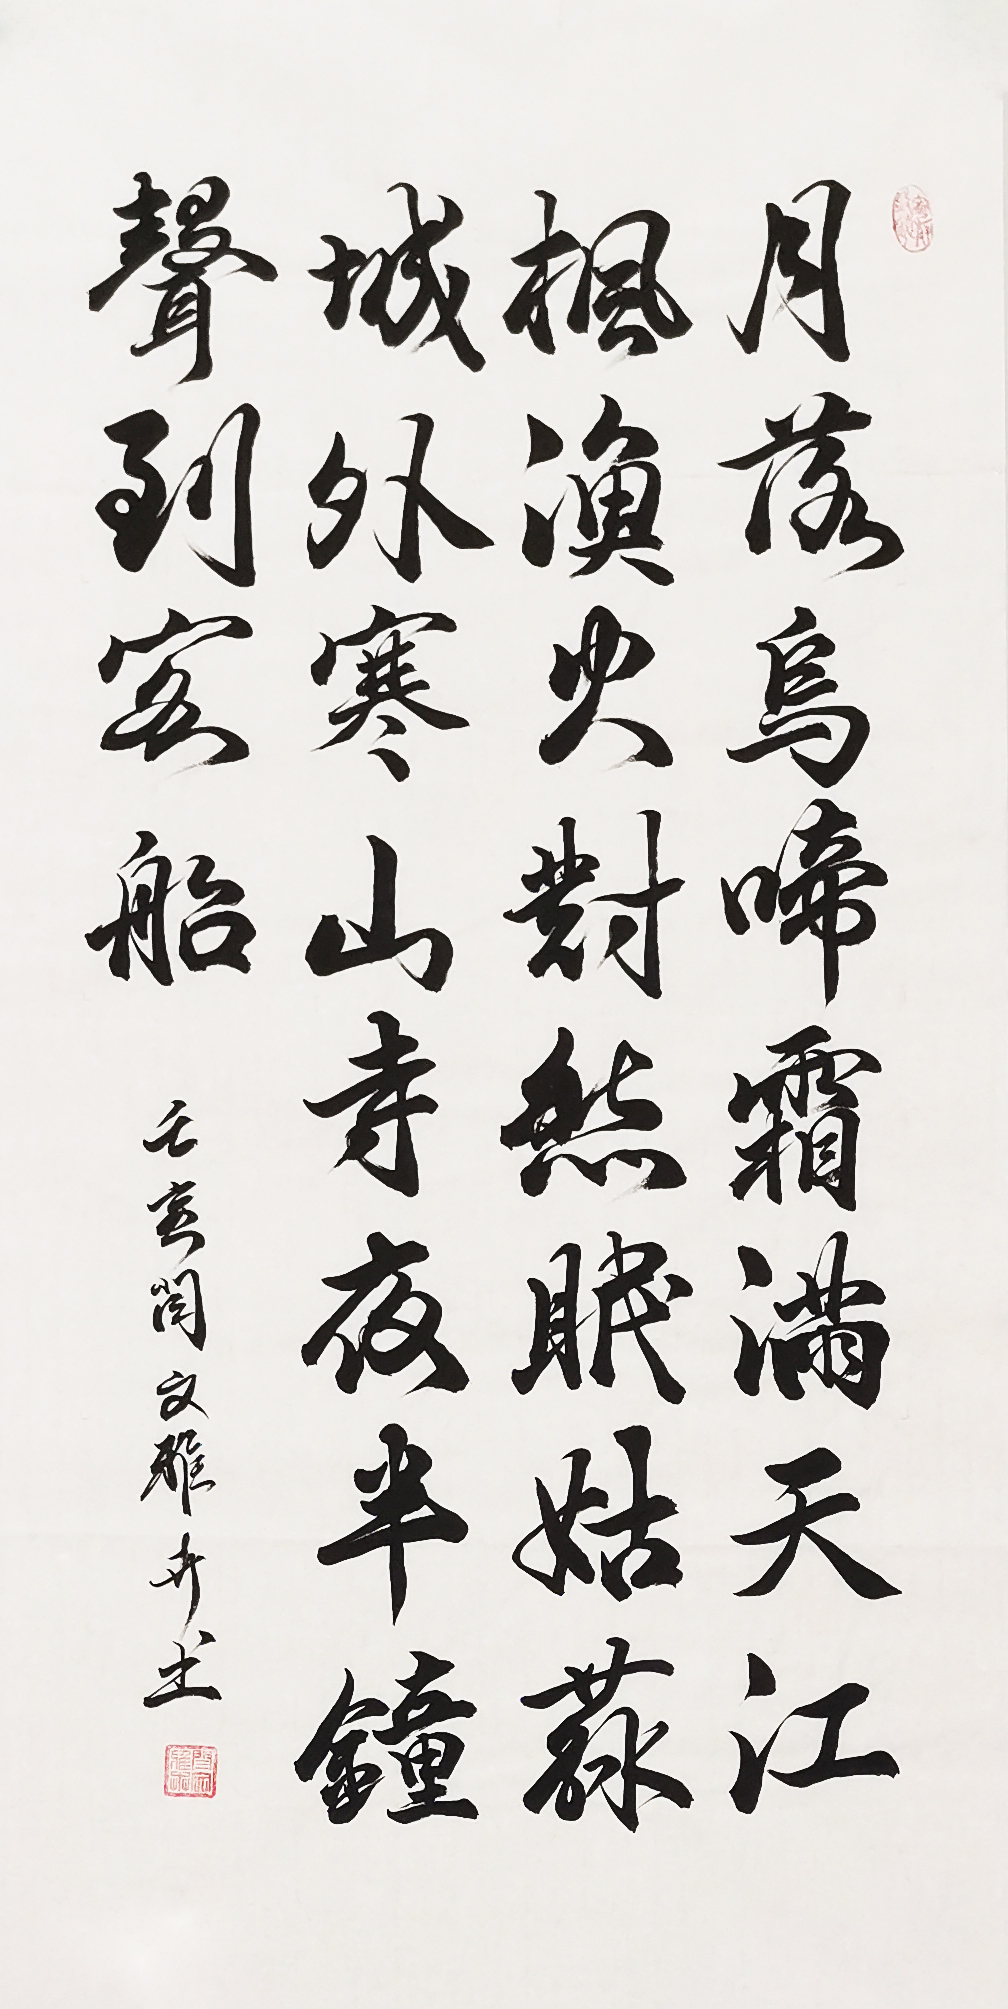 月落烏啼霜滿天江
楓漁火對愁眠姑蘇
城外寒山寺夜半鐘
聲到客船
壬寅閆文雅书